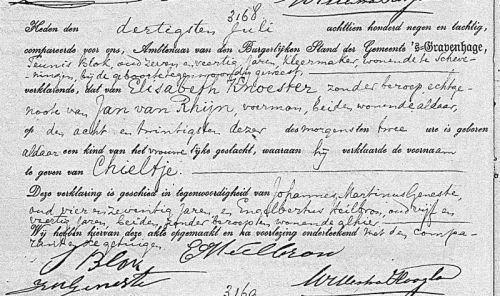 3168
Heden den dertigsten Juli achttien honderd negen en tachtig,
compareerde voor ons, Ambtenaar van den Burgerlijken Stand der Gemeente 's-Gravenhage,
Teunis Blok, oud zeven en veertig jaren, kleermaker, wonende te Scheve-
ningen, bij de geboorte tegenwoordig geweest,
verklarende, dat van Elisabeth Knoester zonder beroep echtge-
noote van Jan van Rhijn, voerman, beiden wonende aldaar,
op den acht en twintigsten dezer des morgens ten twee ure is geboren
aldaar een kind van het vrouwelijke geslacht, waaraan hij verklaarde de voornaam
te geven van Chieltje.
Deze verklaring is geschied in tegenwoordigheid van Johannes Martinus Geneste,
oud vier en zeventig jaren, en Engelbertus Heilbron, oud vijf en
veertig jaren, beiden zonder beroep, wonende alhier
Wij hebben hiervan deze akte opgemaakt en na voorlezing onderteekend met den compa-
rant en de getuigen.
T Blok E Heilbron
Geneste
3169